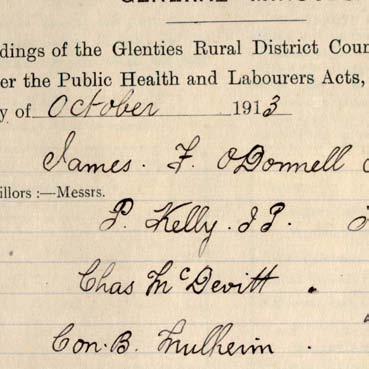 dings of the Glenties Rural District Cour
er the Public Health and Labourers Acts,
y of October 1913
James. F. O'Donnell
illors :—Messrs.
P. Kelly. J P.
Chas McDevitt .
Con. B. Mulherin .